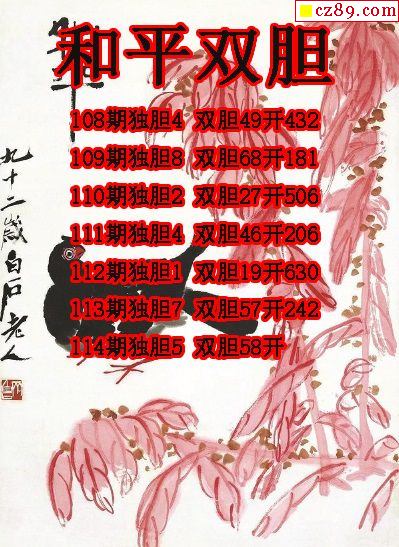 cz89.com
和平双胆
108期独胆4 双胆49开432
109期独胆8 双胆68开181
110期独胆2 双胆27开506
111期独胆4 双胆46开206
112期独胆1 双胆19开630
113期独胆7 双胆57开242
114期独胆5 双胆58开
九十二岁白石老人